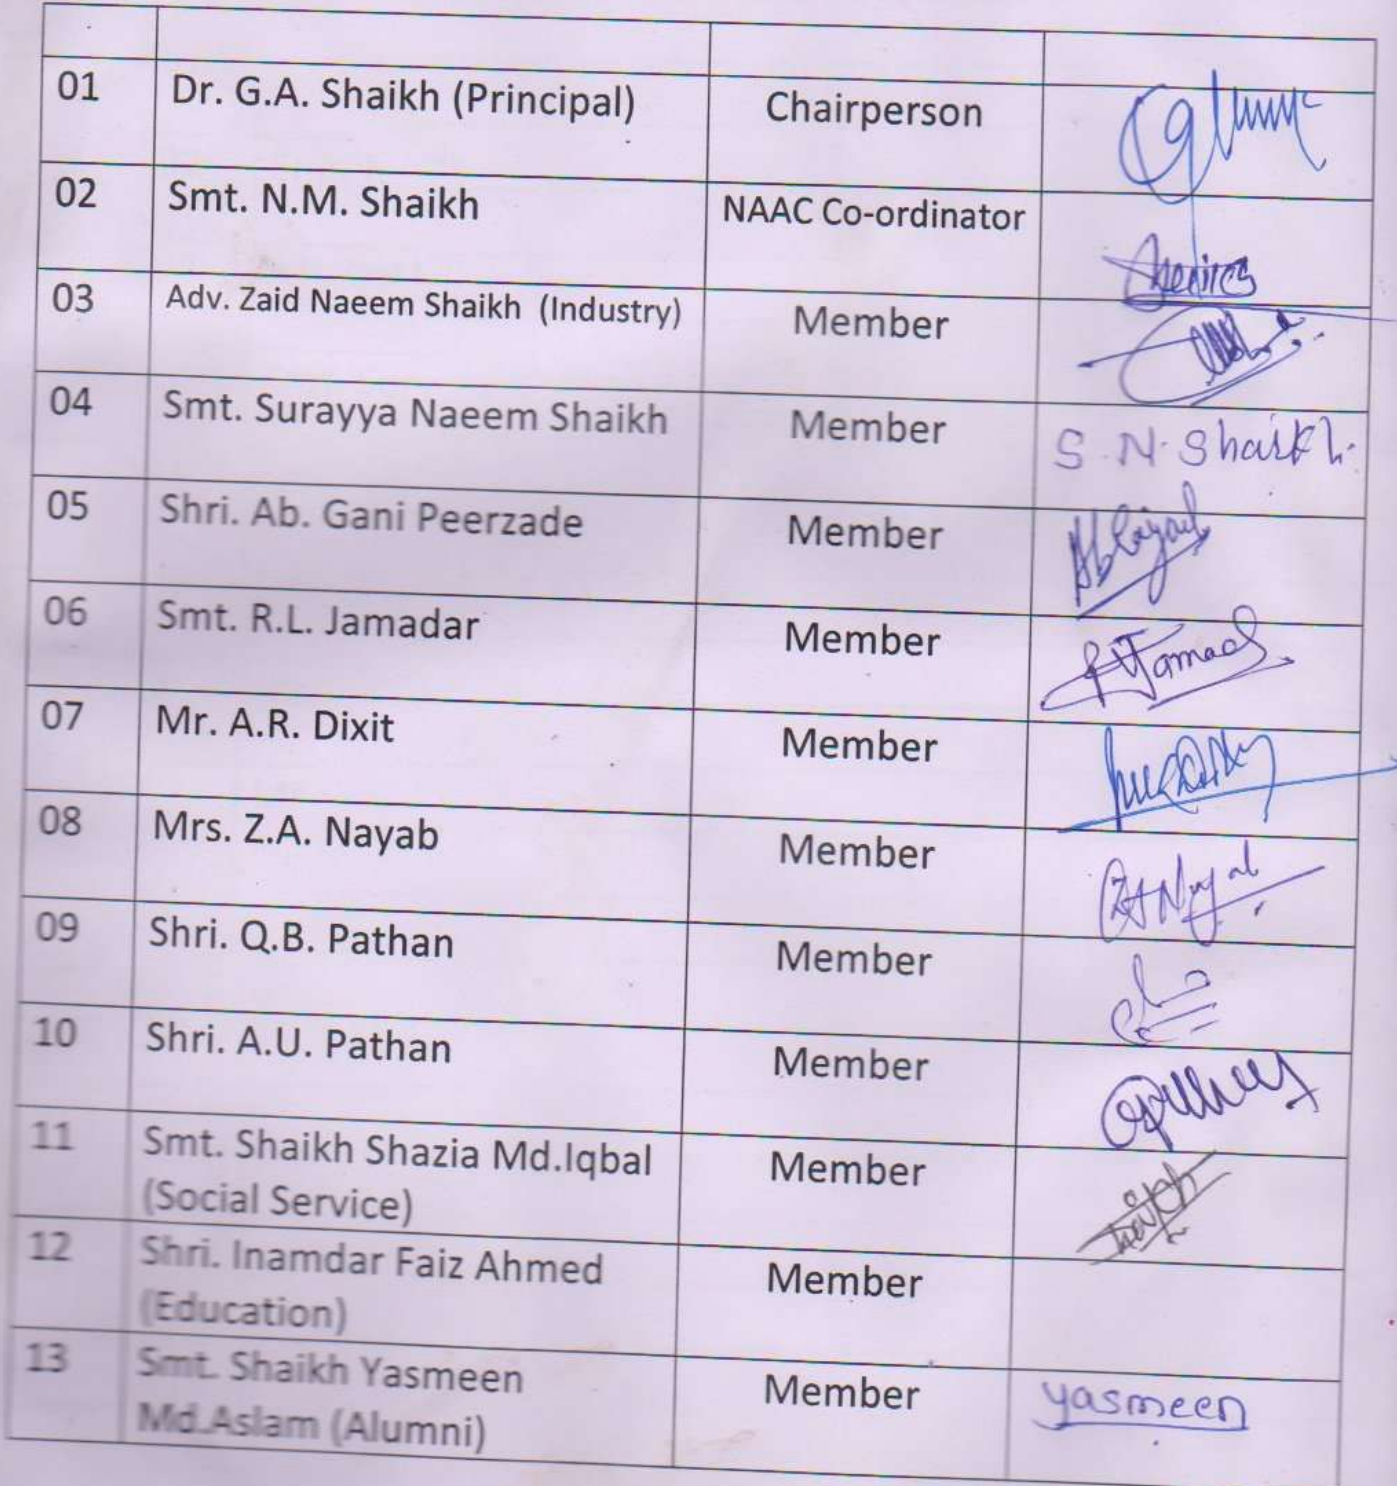 01 Dr. G.A. Shaikh (Principal) Chairperson
02 Smt. N.M. Shaikh NAAC Co-ordinator
03 Adv. Zaid Naeem Shaikh (Industry) Member
04 Smt. Surayya Naeem Shaikh Member S.N.Shaikh.
05 Shri. Ab. Gani Peerzade Member
06 Smt. R.L. Jamadar Member
07 Mr. A.R. Dixit Member
08 Mrs. Z.A. Nayab Member
09 Shri. Q.B. Pathan Member
10 Shri. A.U. Pathan Member
11 Smt. Shaikh Shazia Md.Iqbal Member
(Social Service)
12 Shri. Inamdar Faiz Ahmed Member
(Education)
13 Smt. Shaikh Yasmeen Member yasmeen
Md.Aslam (Alumni)